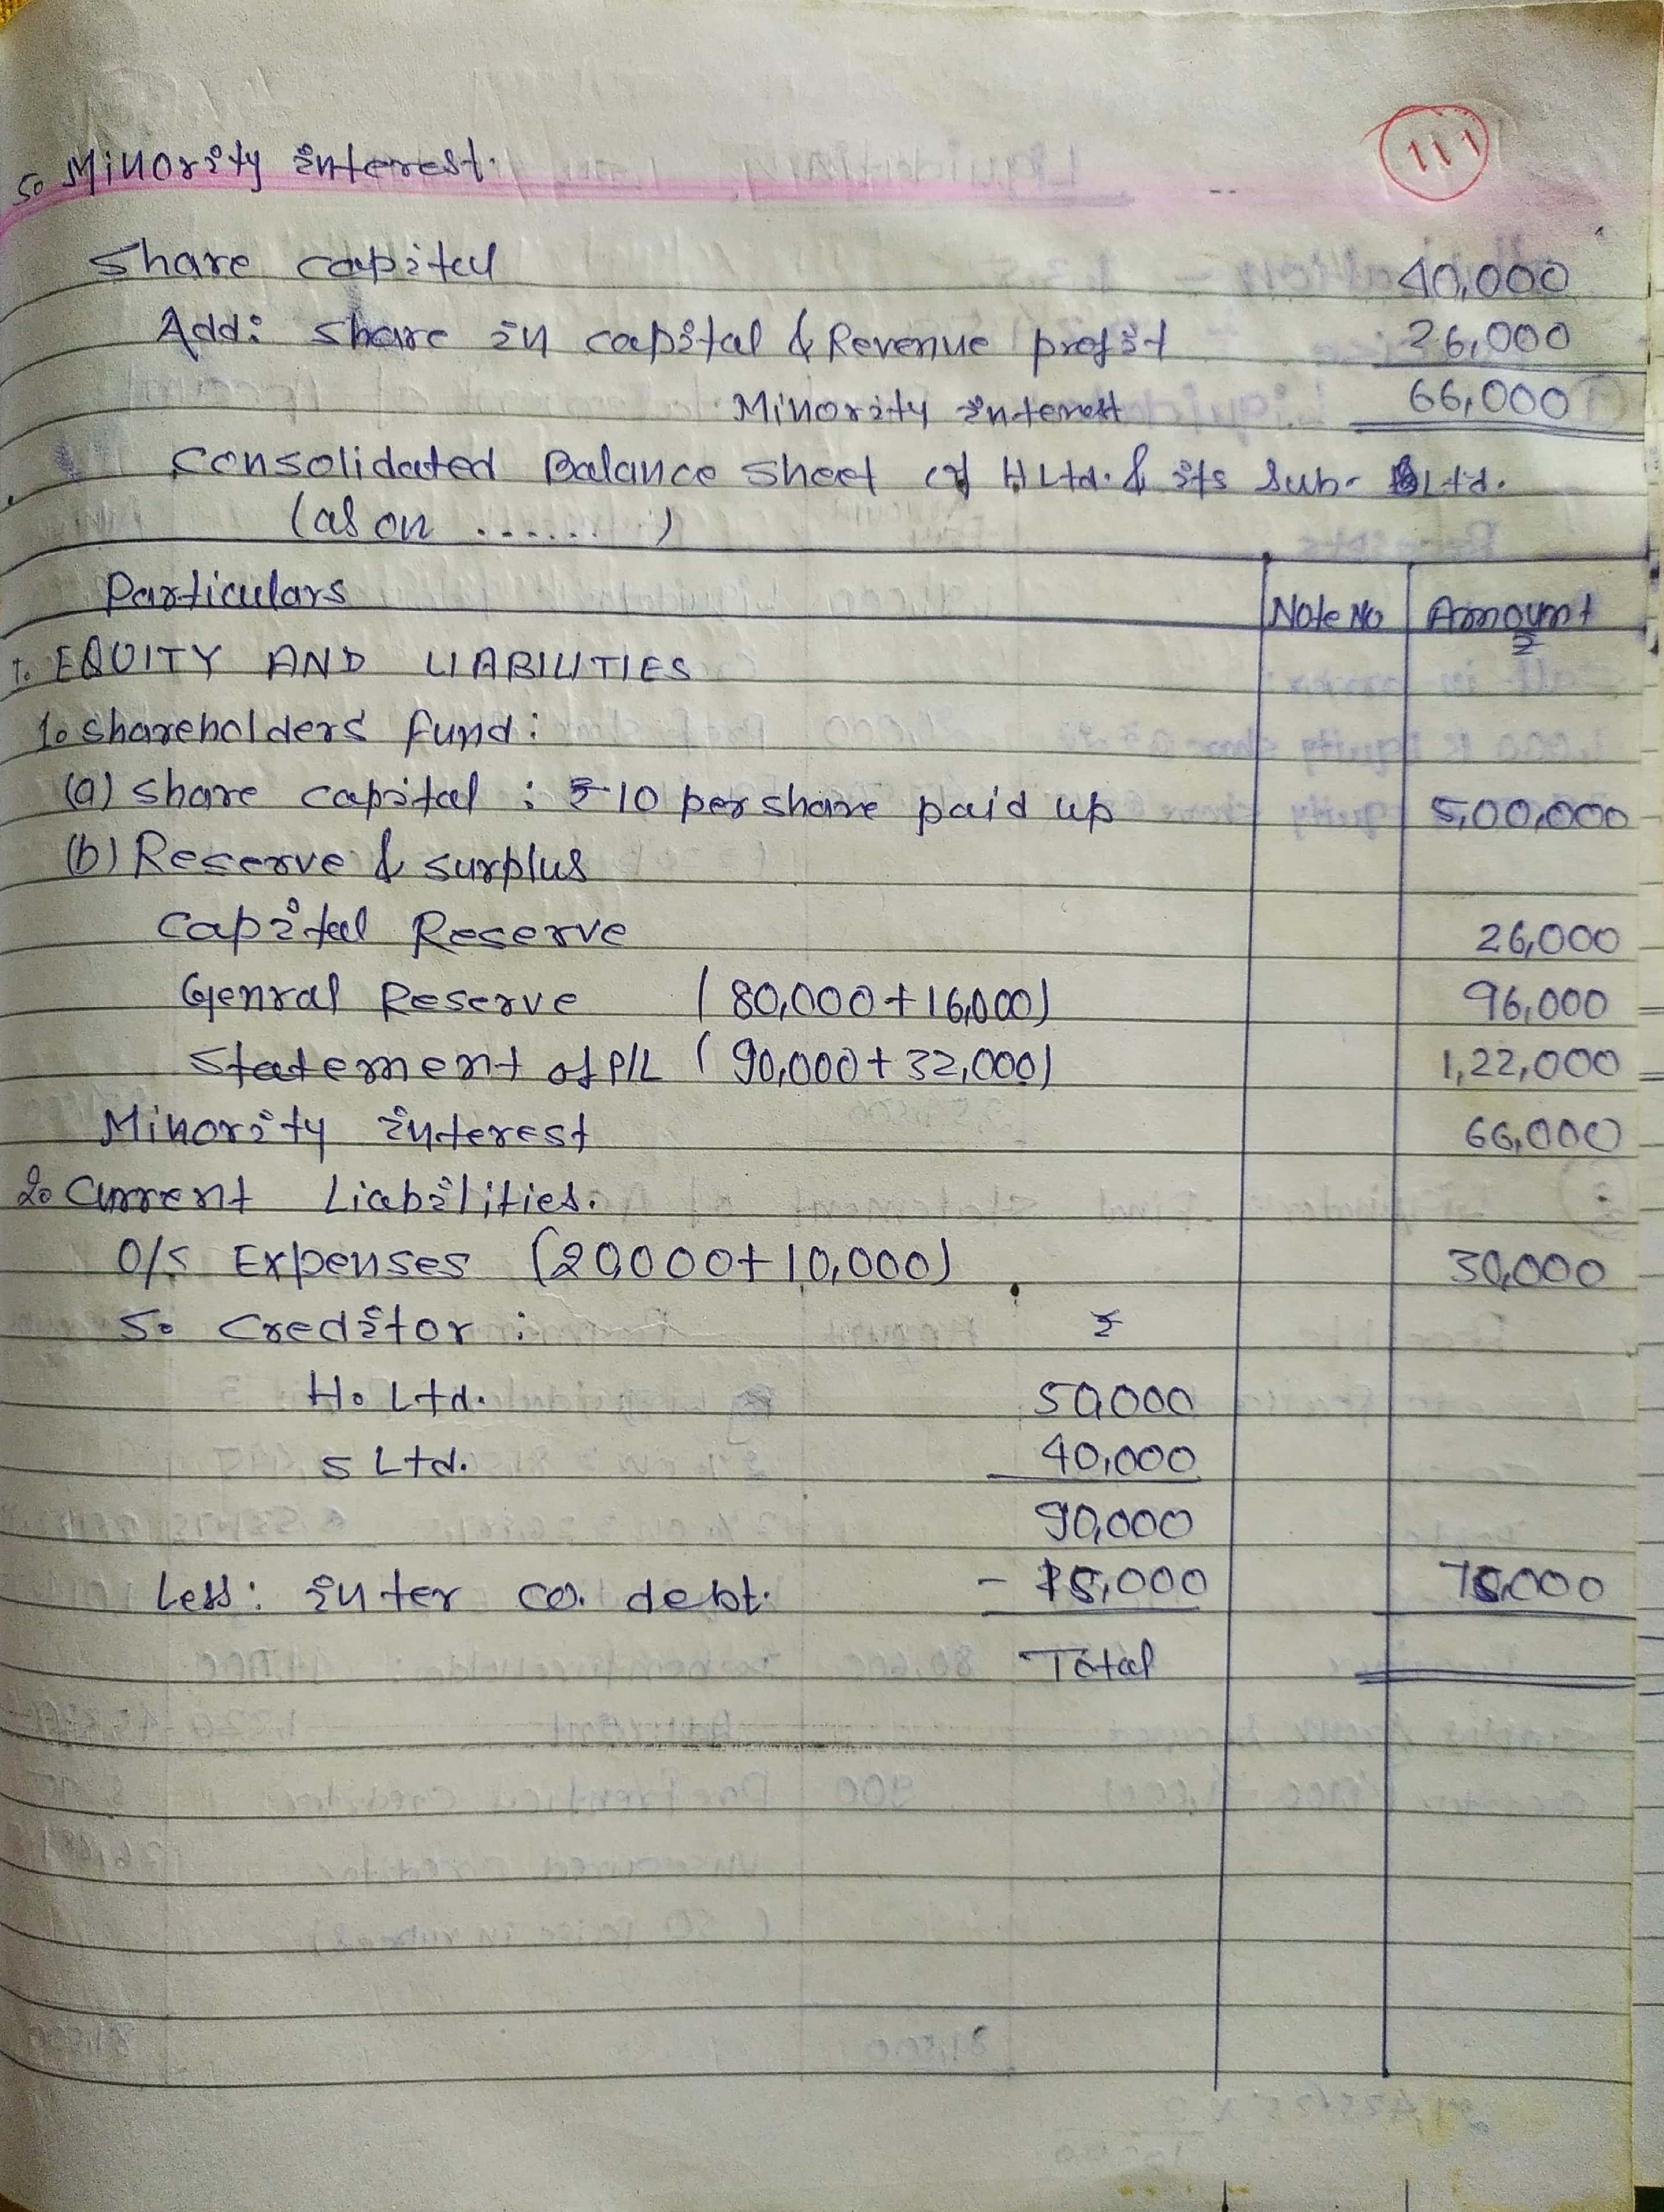 111
5. Minority interest.
Share capital 40,000
Add: share in capital & Revenue profit 26,000
Minority interest 66,000
Consolidated Balance Sheet of H Ltd. & its Sub. S Ltd.
(as on ......)
Particulars Note No Amount
₹
I. EQUITY AND LIABILITIES
1. Shareholders fund:
(a) Share capital : ₹10 per share paid up 5,00,000
(b) Reserve & surplus
Capital Reserve 26,000
Genral Reserve (80,000+16,000) 96,000
Statement of P/L (90,000+32,000) 1,22,000
Minority interest 66,000
2. Current Liabilities.
O/S Expenses (20,000+10,000) 30,000
S. Creditor : ₹
H. Ltd. 50,000
S Ltd. 40,000
90,000
Less: inter co. debt. - 15,000 75,000
Total